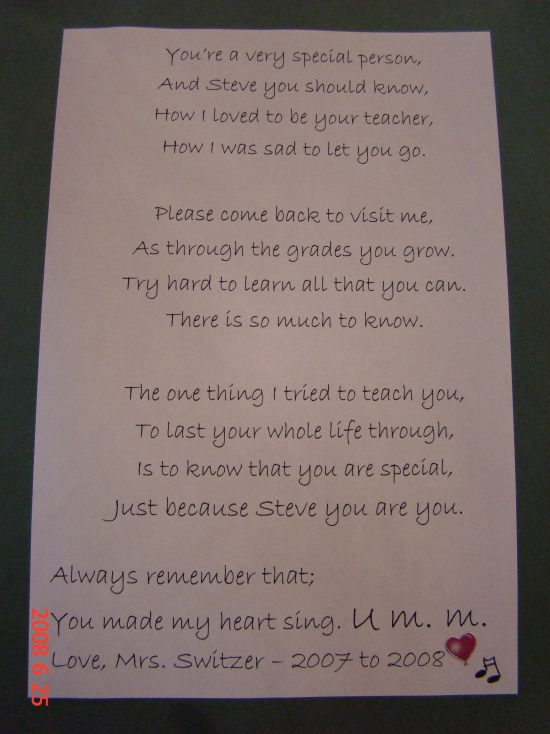 You're a very special person,
And Steve you should know,
How I loved to be your teacher,
How I was sad to let you go.
Please come back to visit me,
As through the grades you grow.
Try hard to learn all that you can.
There is so much to know.
The one thing I tried to teach you,
To last your whole life through,
Is to know that you are special,
Just because Steve you are you.
Always remember that;
You made my heart sing. U m. m.
Love, Mrs. Switzer - 2007 to 2008
2008 6 25